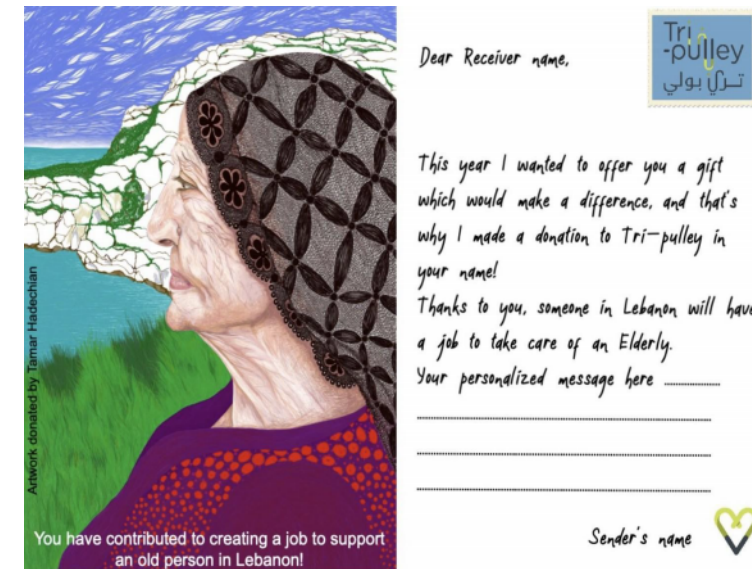 Artwork donated by Tamar Hadechian
You have contributed to creating a job to support
an old person in Lebanon!
Tri
-pulley
تري بولي
Dear Receiver name,
This year I wanted to offer you a gift
which would make a difference, and that's
why I made a donation to Tri-pulley in
your name!
Thanks to you, someone in Lebanon will have
a job to take care of an Elderly.
Your personalized message here ..............
Sender's name